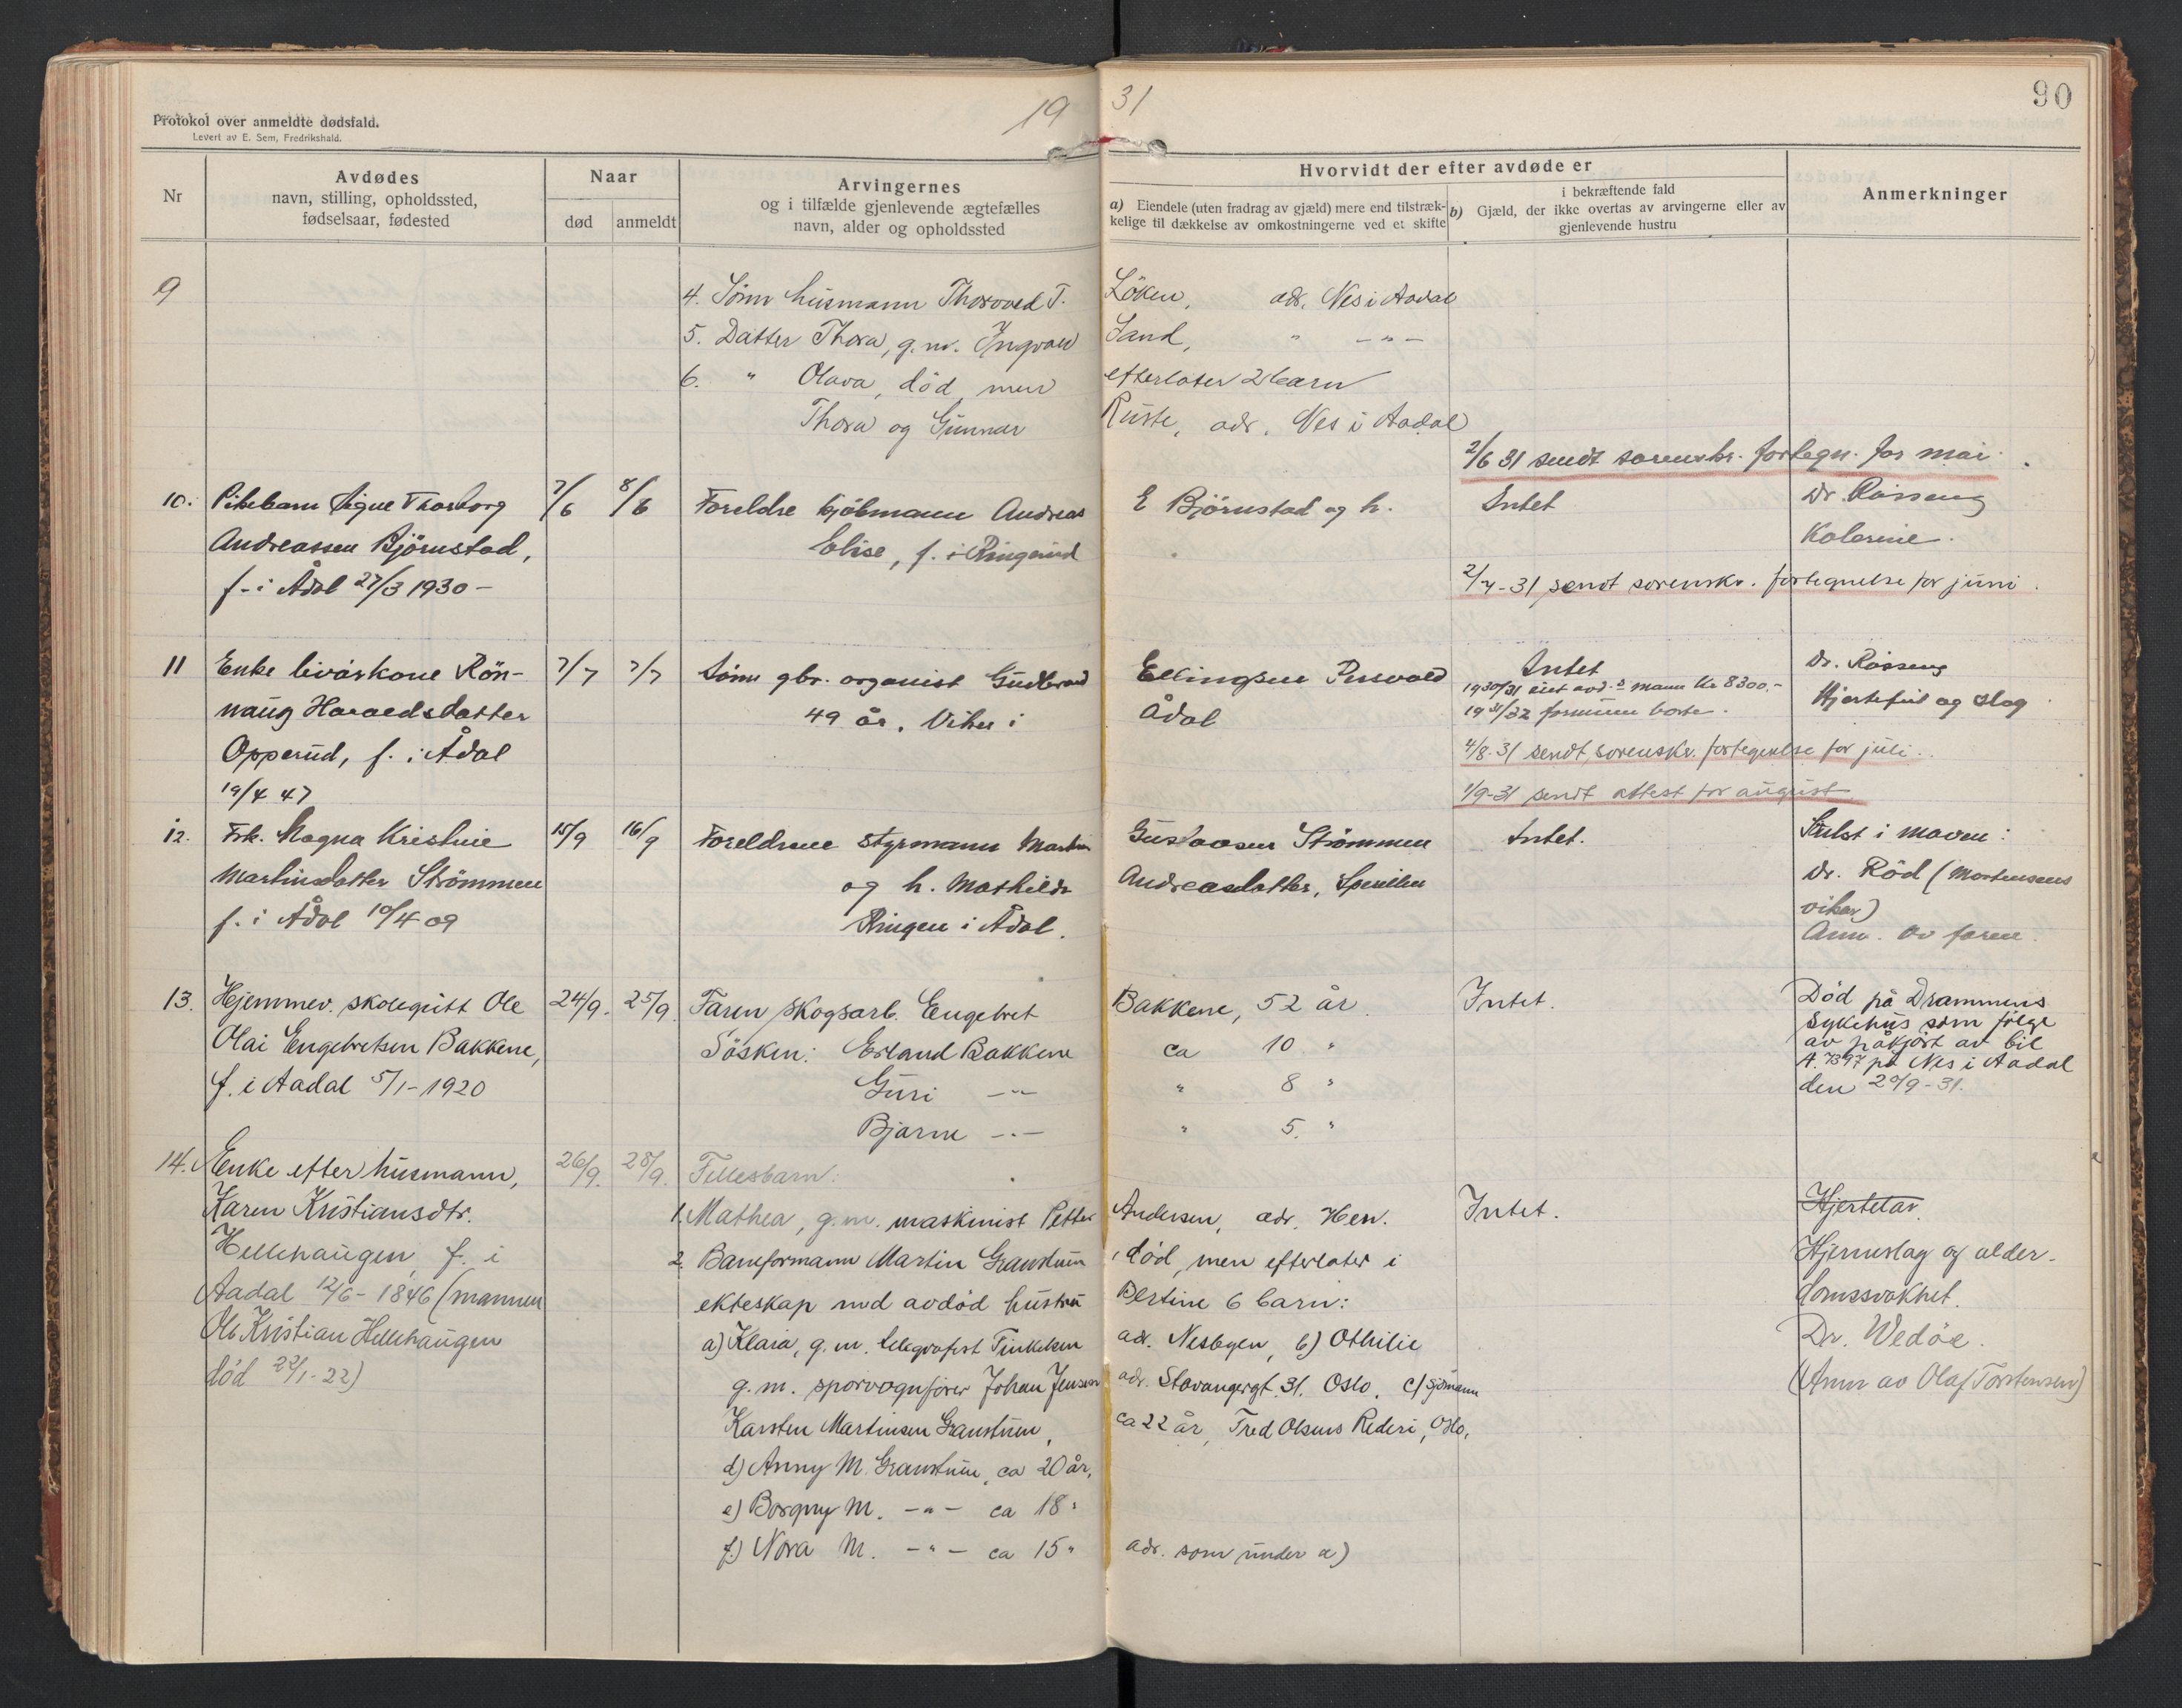 Protokol over anmeldte dødsfald.
Levert av E. Sem, Fredrikshald.
19 31
90
Nr
Avdødes
navn, stilling, opholdssted,
fødselsaar, fødested
Naar
død anmeldt
Arvingernes
og i tilfælde gjenlevende ægtefælles
navn, alder og opholdssted
Hvorvidt der efter avdøde er
a) Eiendele (uten fradrag av gjæld) mere end tilstræk-
kelige til dækkelse av omkostningerne ved et skifte
i bekræftende fald
b) Gjæld, der ikke overtas av arvingerne eller av
gjenlevende hustru
Anmerkninger
9
4. Sønn husmann Thorvald T. Löken, adr. Nes i Aadal
5. Datter Thora, g.m. Ingvald Sand, " -"-
6. " Olava, död, men efterlater 2 barn
Thora og Gunnar Ruste, adr. Nes i Aadal
2/6 31 sendt sorenskr. fortegn. for mai.
10. Pikebarn Signe Thorborg 7/6 8/6 Foreldre kjöbmann Andreas E Björnstad og h. Intet Dr. Rösseng
Andreassen Björnstad, Elise, f. i Ringerud Kolerine.
f. i Ådal 27/3 1930 -
2/7-31 sendt sorenskr. fortegnelse for juni.
11 Enke livörkone Rön- 7/7 7/7 Sönn gbr. organist Gudbrand Ellingsen Intet Dr. Rösseng
naug Haraldsdatter 49 år. Viker i Ådal 1930/31 eiet avd.s mann Kr 8300.- Hjertefeil og slag
1931/32 formuen borte.
Opperud, f. i Ådal 4/8-31 sendt sorenskr. fortegnelse for juli.
19/4 47 1/9-31 sendt attest for august
12. Frk. Magna Kristine 15/9 16/9 Foreldrene styrmann Martin Gustavsen Strömmen Intet. Svulst i maven:
Martinsdatter Strömmen og h. Mathilde Andreasdatter, Sperillen Dr. Röd (Mortensens
f. i Ådal 10/4 09 Ringen i Ådal. vikar)
Anm. av faren.
13. Hjemmev. skolegutt Ole 24/9. 25/9. Faren skogsarb. Engebret Bakkene, 52 år. Intet. Död på Drammens
Olai Engebretsen Bakkene, Sösken: Erland Bakkene ca 10 " sykehus som fölge
av påkjört av bil
f. i Aadal 5/1-1920 Guri -"- " 8 " A. 7397 på Nes i Aadal
den 20/9-31.
Bjarne -"- " 5. "
14. Enke efter husmann, 26/9. 28/9. Fellesbarn:
Karen Kristiansdtr. 1. Mathea, g.m. maskinist Petter Andersen, adr. Hen. Intet. Hjertelar
Hellehaugen, f. i 2. Baneformann Martin Granstuen, död, men efterlater i Hjerneslag og alder-
Aadal 12/6-1846 (mannen ekteskap med avdöd hustru Bertine 6 barn: domssvakhet.
Ole Kristian Hellehaugen a) Klara, g.m. telegrafist Finkelsen adr. Nesbyen, b) Othilie Dr. Wedöe.
död 22/1-22) g.m. sporvognförer Johan Jensen adr. Stavangergt. 31. Oslo. c) sjömann (Anm av Olaf Torstensen)
Karsten Martinsen Granstuen, ca 22 år, Fred Olsens Rederi, Oslo,
d) Anny M. Granstuen, ca 20 år,
e) Borgny M. -"- ca 18 "
f) Nora M. -"- ca 15 " adr. som under a)